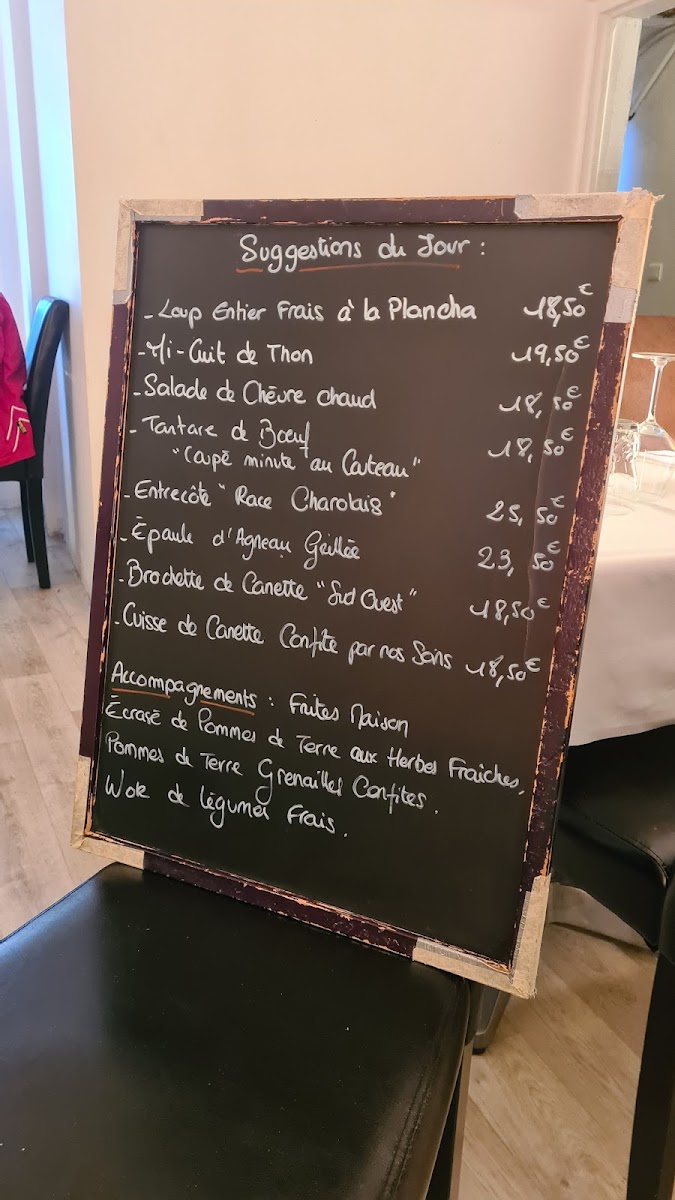 Suggestions du Jour :
- Loup Entier Frais à la Plancha 18,50€
- Mi-Cuit de Thon 19,50€
- Salade de Chèvre chaud 18,50€
- Tartare de Bœuf 18,50€
"Coupé minute au Couteau"
- Entrecôte "Race Charolais" 25,50€
- Épaule d'Agneau Grillée 23,50€
- Brochette de Canette "Sud Ouest" 18,50€
- Cuisse de Canette Confite par nos Soins 18,50€
Accompagnements : Frites Maison
Écrasé de Pommes de Terre aux Herbes Fraîches,
Pommes de Terre Grenailles Confites.
Wok de légumes Frais.